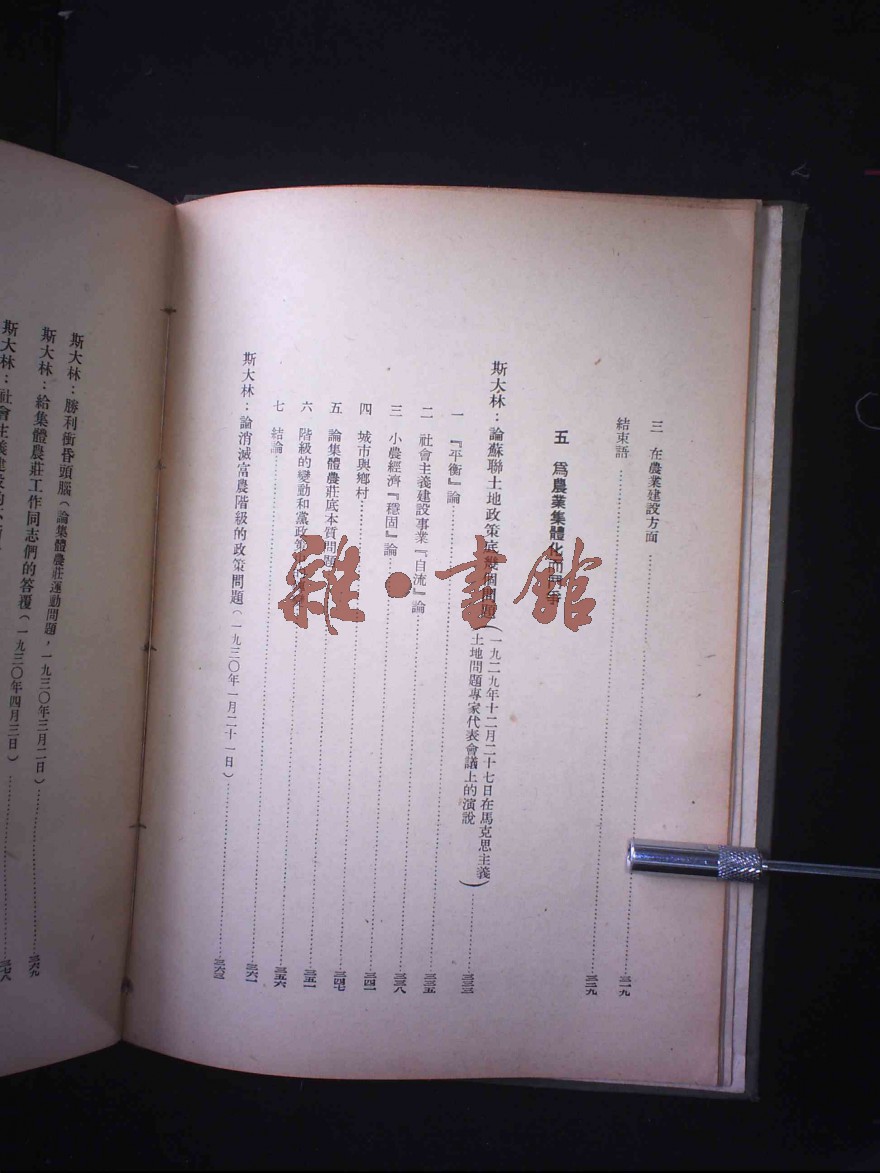 三　在農業建設方面……三一九
結束語……三二九
五　爲農業集體化而鬥爭
斯大林：論蘇聯土地政策底幾個問題（一九二九年十二月二十七日在馬克思主義
土地問題專家代表會議上的演說）……三三三
一　『平衡』論……三三五
二　社會主義建設事業『自流』論……三三八
三　小農經濟『穩固』論……三四一
四　城市與鄉村……三四七
五　論集體農莊底本質問題……三五一
六　階級的變動和黨政策……三五六
七　結論……三六一
斯大林：論消滅富農階級的政策問題（一九三〇年一月二十一日）……三六三
斯大林：勝利衝昏頭腦（論集體農莊運動問題，一九三〇年三月二日）……三六九
斯大林：給集體農莊工作同志們的答覆（一九三〇年四月三日）……三七八
斯大林：社會主義建設的
雜·書館